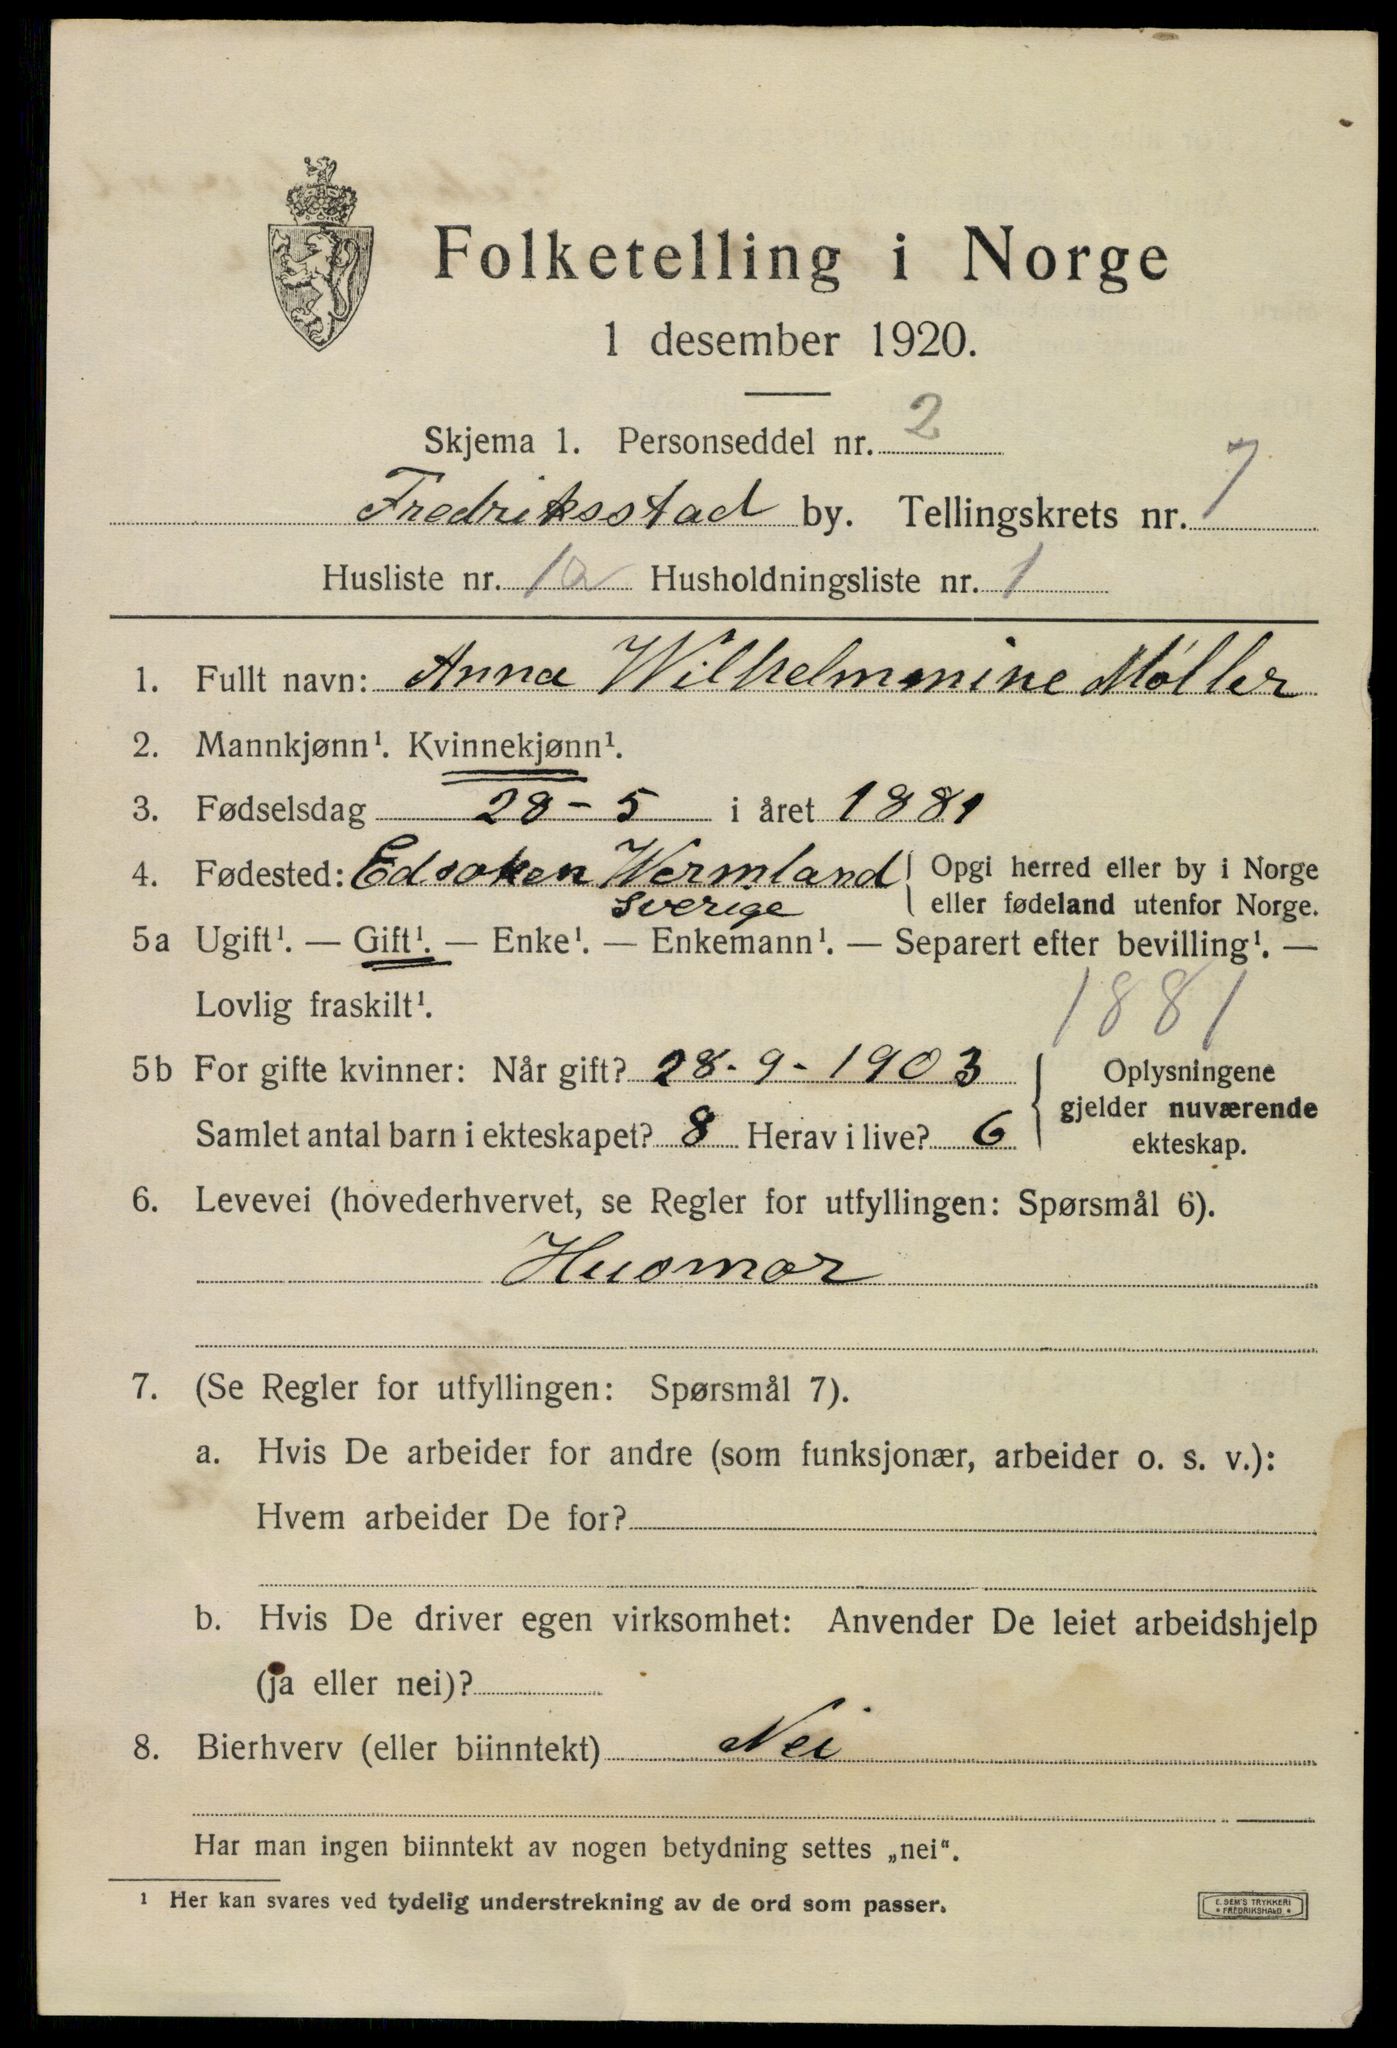 Folketelling i Norge
1 desember 1920.
Skjema 1. Personseddel nr. 2
Fredriksstad by. Tellingskrets nr. 7
Husliste nr. 10 Husholdningsliste nr. 1
1. Fullt navn: Anna Wilhelmmine Møller
2. Mannkjønn¹. Kvinnekjønn¹.
3. Fødselsdag 28-5 i året 1881
4. Fødested: Edsoken Wermland Opgi herred eller by i Norge
Sverige eller fødeland utenfor Norge.
5a Ugift¹. — Gift¹. — Enke¹. — Enkemann¹. — Separert efter bevilling¹. —
Lovlig fraskilt¹. 1881
5b For gifte kvinner: Når gift? 28-9-1903 Oplysningene
gjelder nuværende
Samlet antal barn i ekteskapet? 8 Herav i live? 6 ekteskap.
6. Levevei (hovederhvervet, se Regler for utfyllingen: Spørsmål 6).
Husmor
7. (Se Regler for utfyllingen: Spørsmål 7).
a. Hvis De arbeider for andre (som funksjonær, arbeider o. s. v.):
Hvem arbeider De for?
b. Hvis De driver egen virksomhet: Anvender De leiet arbeidshjelp
(ja eller nei)?
8. Bierhverv (eller biinntekt) Nei
Har man ingen biinntekt av nogen betydning settes „nei“.
¹ Her kan svares ved tydelig understrekning av de ord som passer.
E. SEM'S TRYKKERI
* FREDRIKSHALD *